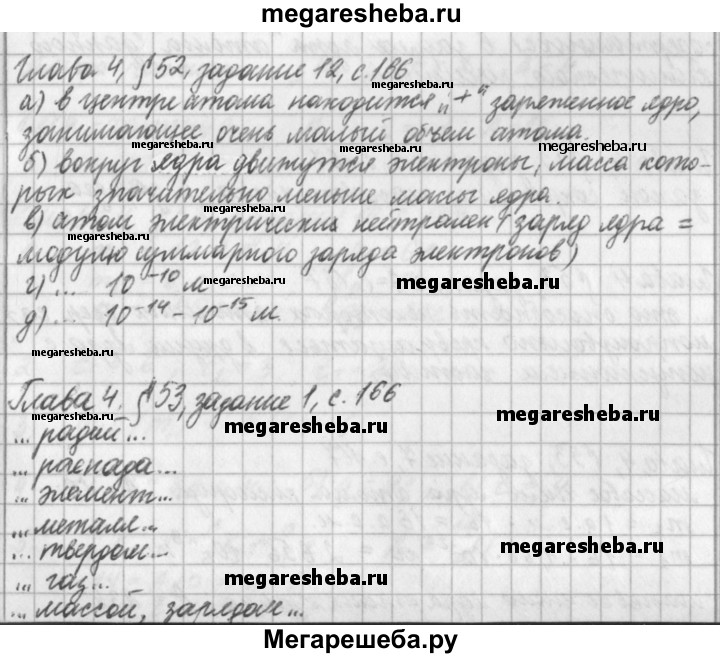 megaresheba.ru
Глава 4, § 52, задание 12, с. 166
megaresheba.ru
а) в центре атома находится „+" заряженное ядро,
megaresheba.ru
занимающее очень малый объем атома.
megaresheba.ru
megaresheba.ru
б) вокруг ядра движутся электроны, масса кото-
рых значительно меньше массы ядра.
megaresheba.ru
в) атом электрических нейтрален (заряд ядра =
megaresheba.ru
модулю суммарного заряда электронов)
г) ... 10⁻¹⁰ м
megaresheba.ru
megaresheba.ru
д) ... 10⁻¹⁴ – 10⁻¹⁵ м.
megaresheba.ru
Глава 4, § 53, задание 1, с. 166
megaresheba.ru
megaresheba.ru
megaresheba.ru
... радий ...
... распада ...
... элемент ...
... металл ...
... твердом ...
megaresheba.ru
... газ ...
megaresheba.ru
megaresheba.ru
... массой, зарядом ...
Мегарешеба.ру